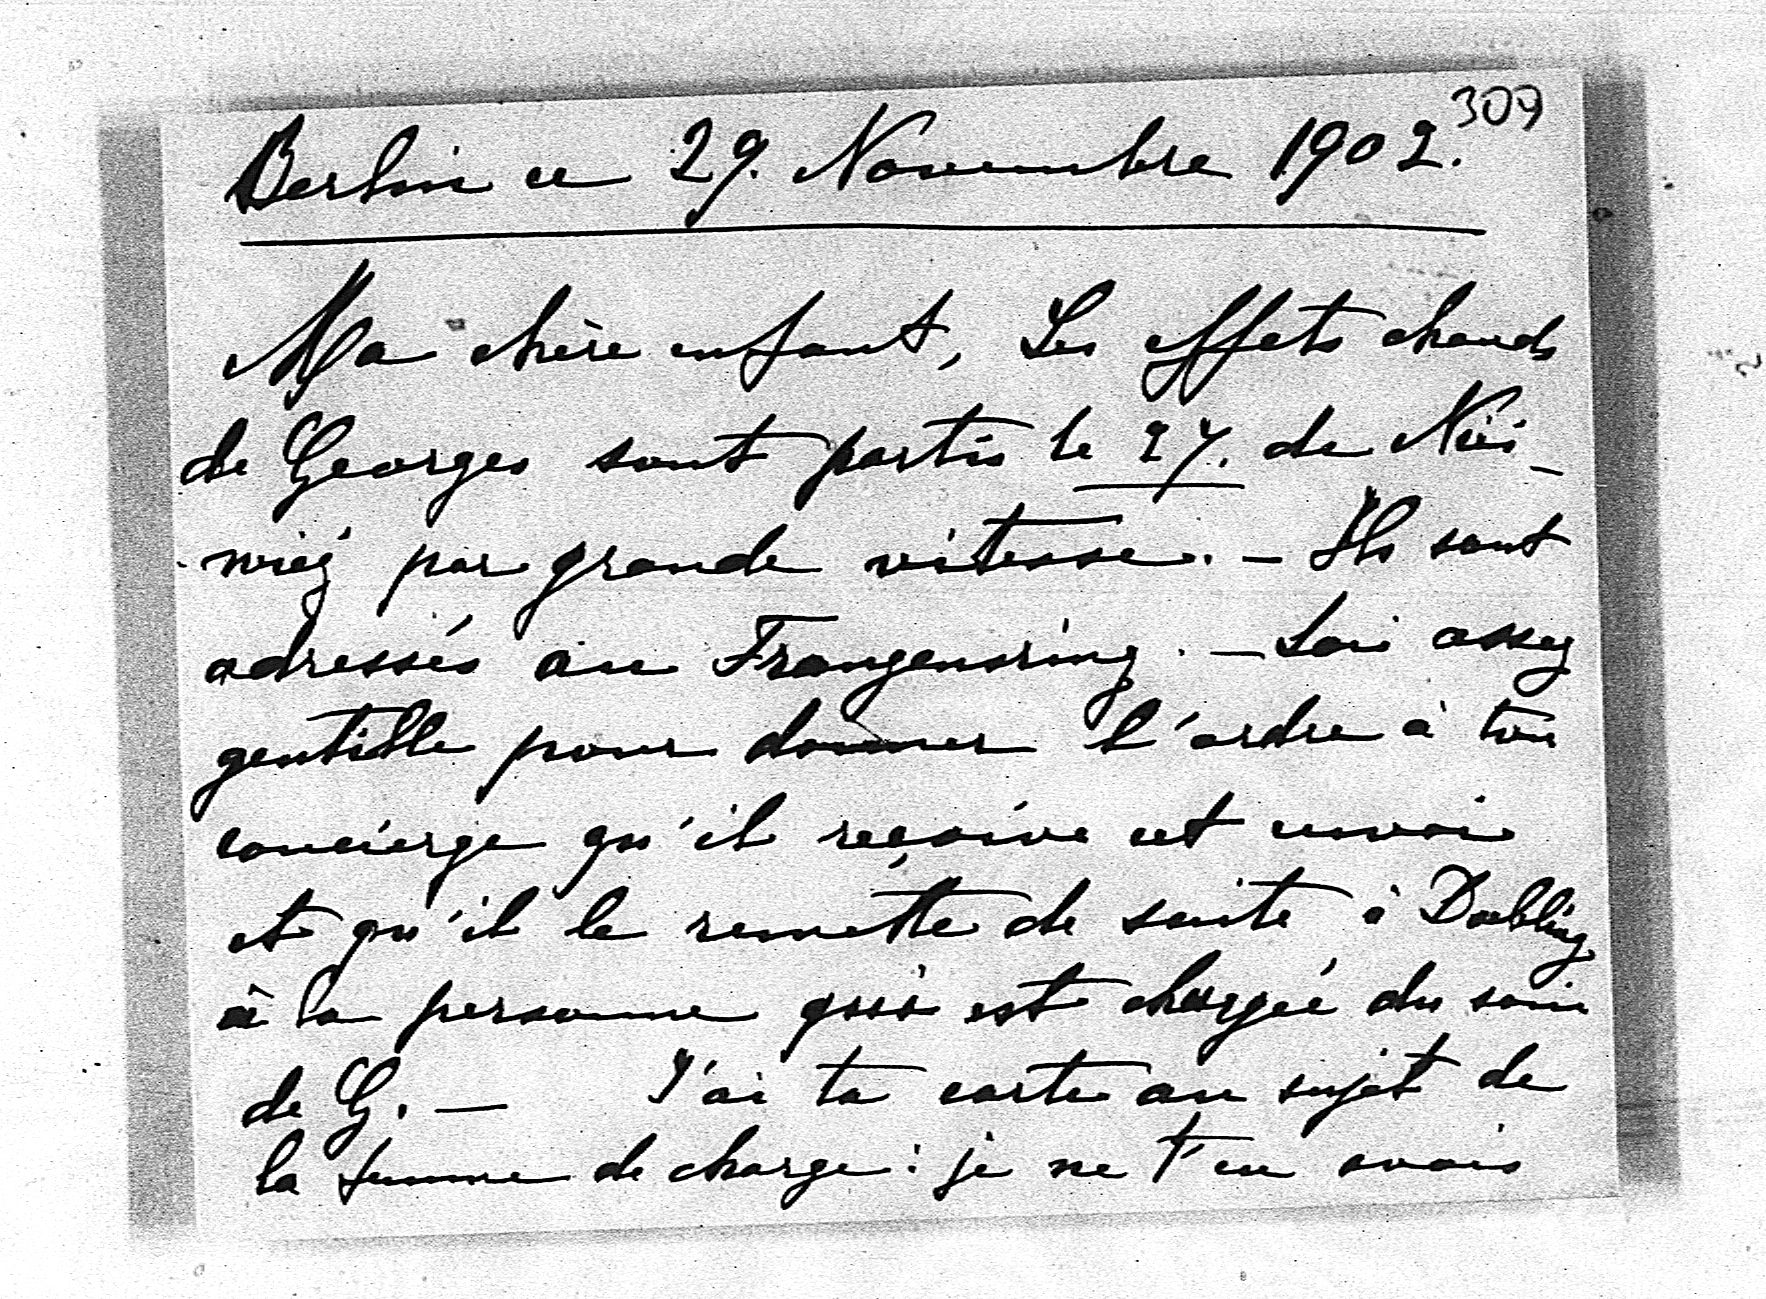 309
Berlin ce 29. Novembre 1902.
Ma chère enfant, Les effets chauds
de Georges sont partis le 27. de Nies-
wiéz par grande vitesse. - Ils sont
adressés au Franzensring. - Sois assez
gentille pour donner l'ordre à ton
concierge qu'il reçoive cet envoi
et qu'il le remette de suite à Doebling
à la personne qui est chargée du soin
de G. - J'ai ta carte au sujet de
la femme de charge: je ne t'en avais